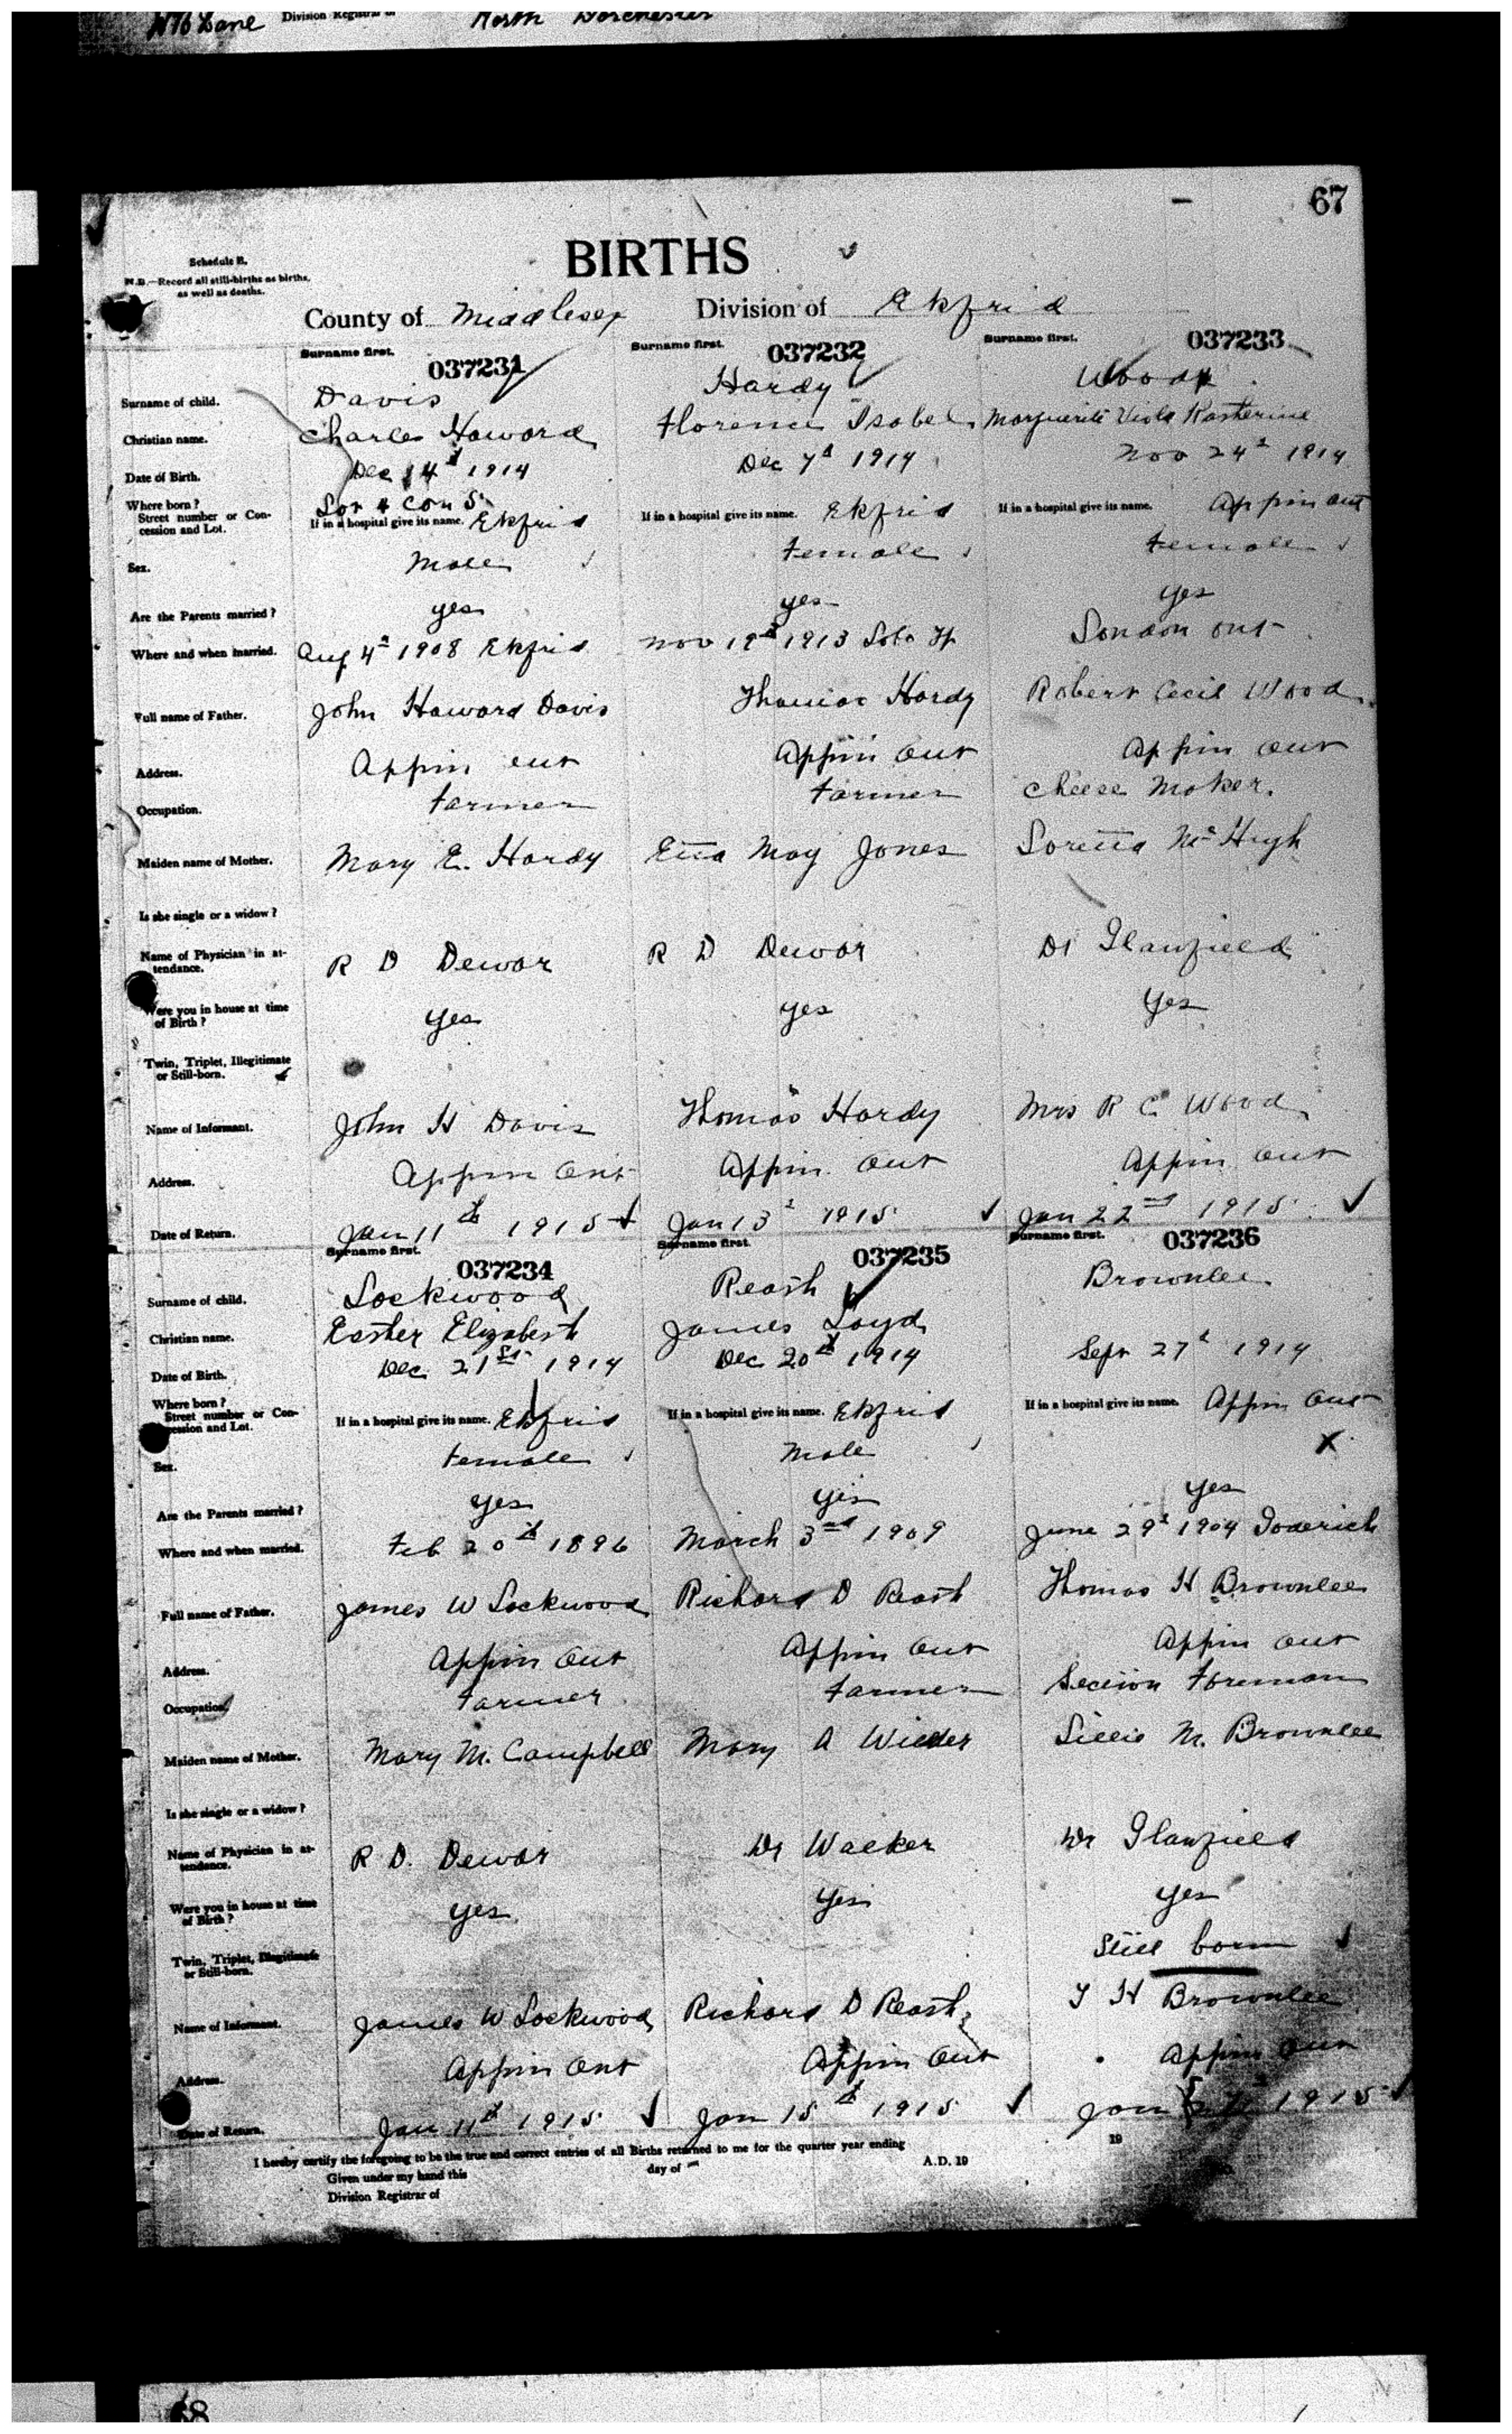 Division Registrar of North Dorchester
67
Schedule B.
BIRTHS
N.B.—Record all still-births as births, as well as deaths.
County of Middlesex Division of Ekfrid
Surname first. Surname first. Surname first.
037231 037232 037233
Surname of child. Davis Hardy Wood
Christian name. Charles Howard Florence Isabel Marguerite Viola Katherine
Date of Birth. Dec 14th 1914 Dec 7th 1914 Nov 24th 1914
Where born? Lot 4 Con 5
Street number or Concession and Lot. If in a hospital give its name. Ekfrid If in a hospital give its name. Ekfrid If in a hospital give its name. Appin Ont
Sex. Male Female Female
Are the Parents married? yes yes yes
Where and when married. Aug 4th 1908 Ekfrid Nov 19th 1913 Lobo Tp London Ont
Full name of Father. John Howard Davis Thomas Hardy Robert Cecil Wood
Address. Appin Ont Appin Ont Appin Ont
Occupation. Farmer Farmer Cheese Maker.
Maiden name of Mother. Mary E. Hardy Etta May Jones Loretta McHugh
Is she single or a widow?
Name of Physician in attendance. R D Dewar R D Dewar Dr Glanfield
Were you in house at time of Birth? Yes Yes Yes
Twin, Triplet, Illegitimate or Still-born.
Name of Informant. John H Davis Thomas Hardy Mrs R C Wood
Address. Appin Ont Appin Ont Appin Ont
Date of Return. Jan 11th 1915 Jan 13th 1915 Jan 22nd 1915
Surname first. Surname first. Surname first.
037234 037235 037236
Surname of child. Lockwood Reath Brownlee
Christian name. Esther Elizabeth James Loyd
Date of Birth. Dec 21st 1914 Dec 20th 1914 Sept 27th 1914
Where born?
Street number or Concession and Lot. If in a hospital give its name. Ekfrid If in a hospital give its name. Ekfrid If in a hospital give its name. Appin Ont
Sex. Female Male X
Are the Parents married? Yes Yes Yes
Where and when married. Feb 20th 1896 March 3rd 1909 June 29th 1904 Goderich
Full name of Father. James W Lockwood Richard D Reath Thomas H Brownlee
Address. Appin Ont Appin Ont Appin Ont
Occupation. Farmer Farmer Section Foreman
Maiden name of Mother. Mary M. Campbell Mary A Lillie M. Brownlee
Is she single or a widow?
Name of Physician in attendance. R D. Dewar Dr Walker Dr Glanfield
Were you in house at time of Birth? Yes Yes Yes
Twin, Triplet, Illegitimate or Still-born. Still born
Name of Informant. James W Lockwood Richard D Reath T H Brownlee
Address. Appin Ont Appin Ont Appin Ont
Date of Return. Jan 11th 1915 Jan 15th 1915 Jan 1915
I hereby certify the foregoing to be the true and correct entries of all Births returned to me for the quarter year ending 19
Given under my hand this day of A.D. 19
Division Registrar of
68